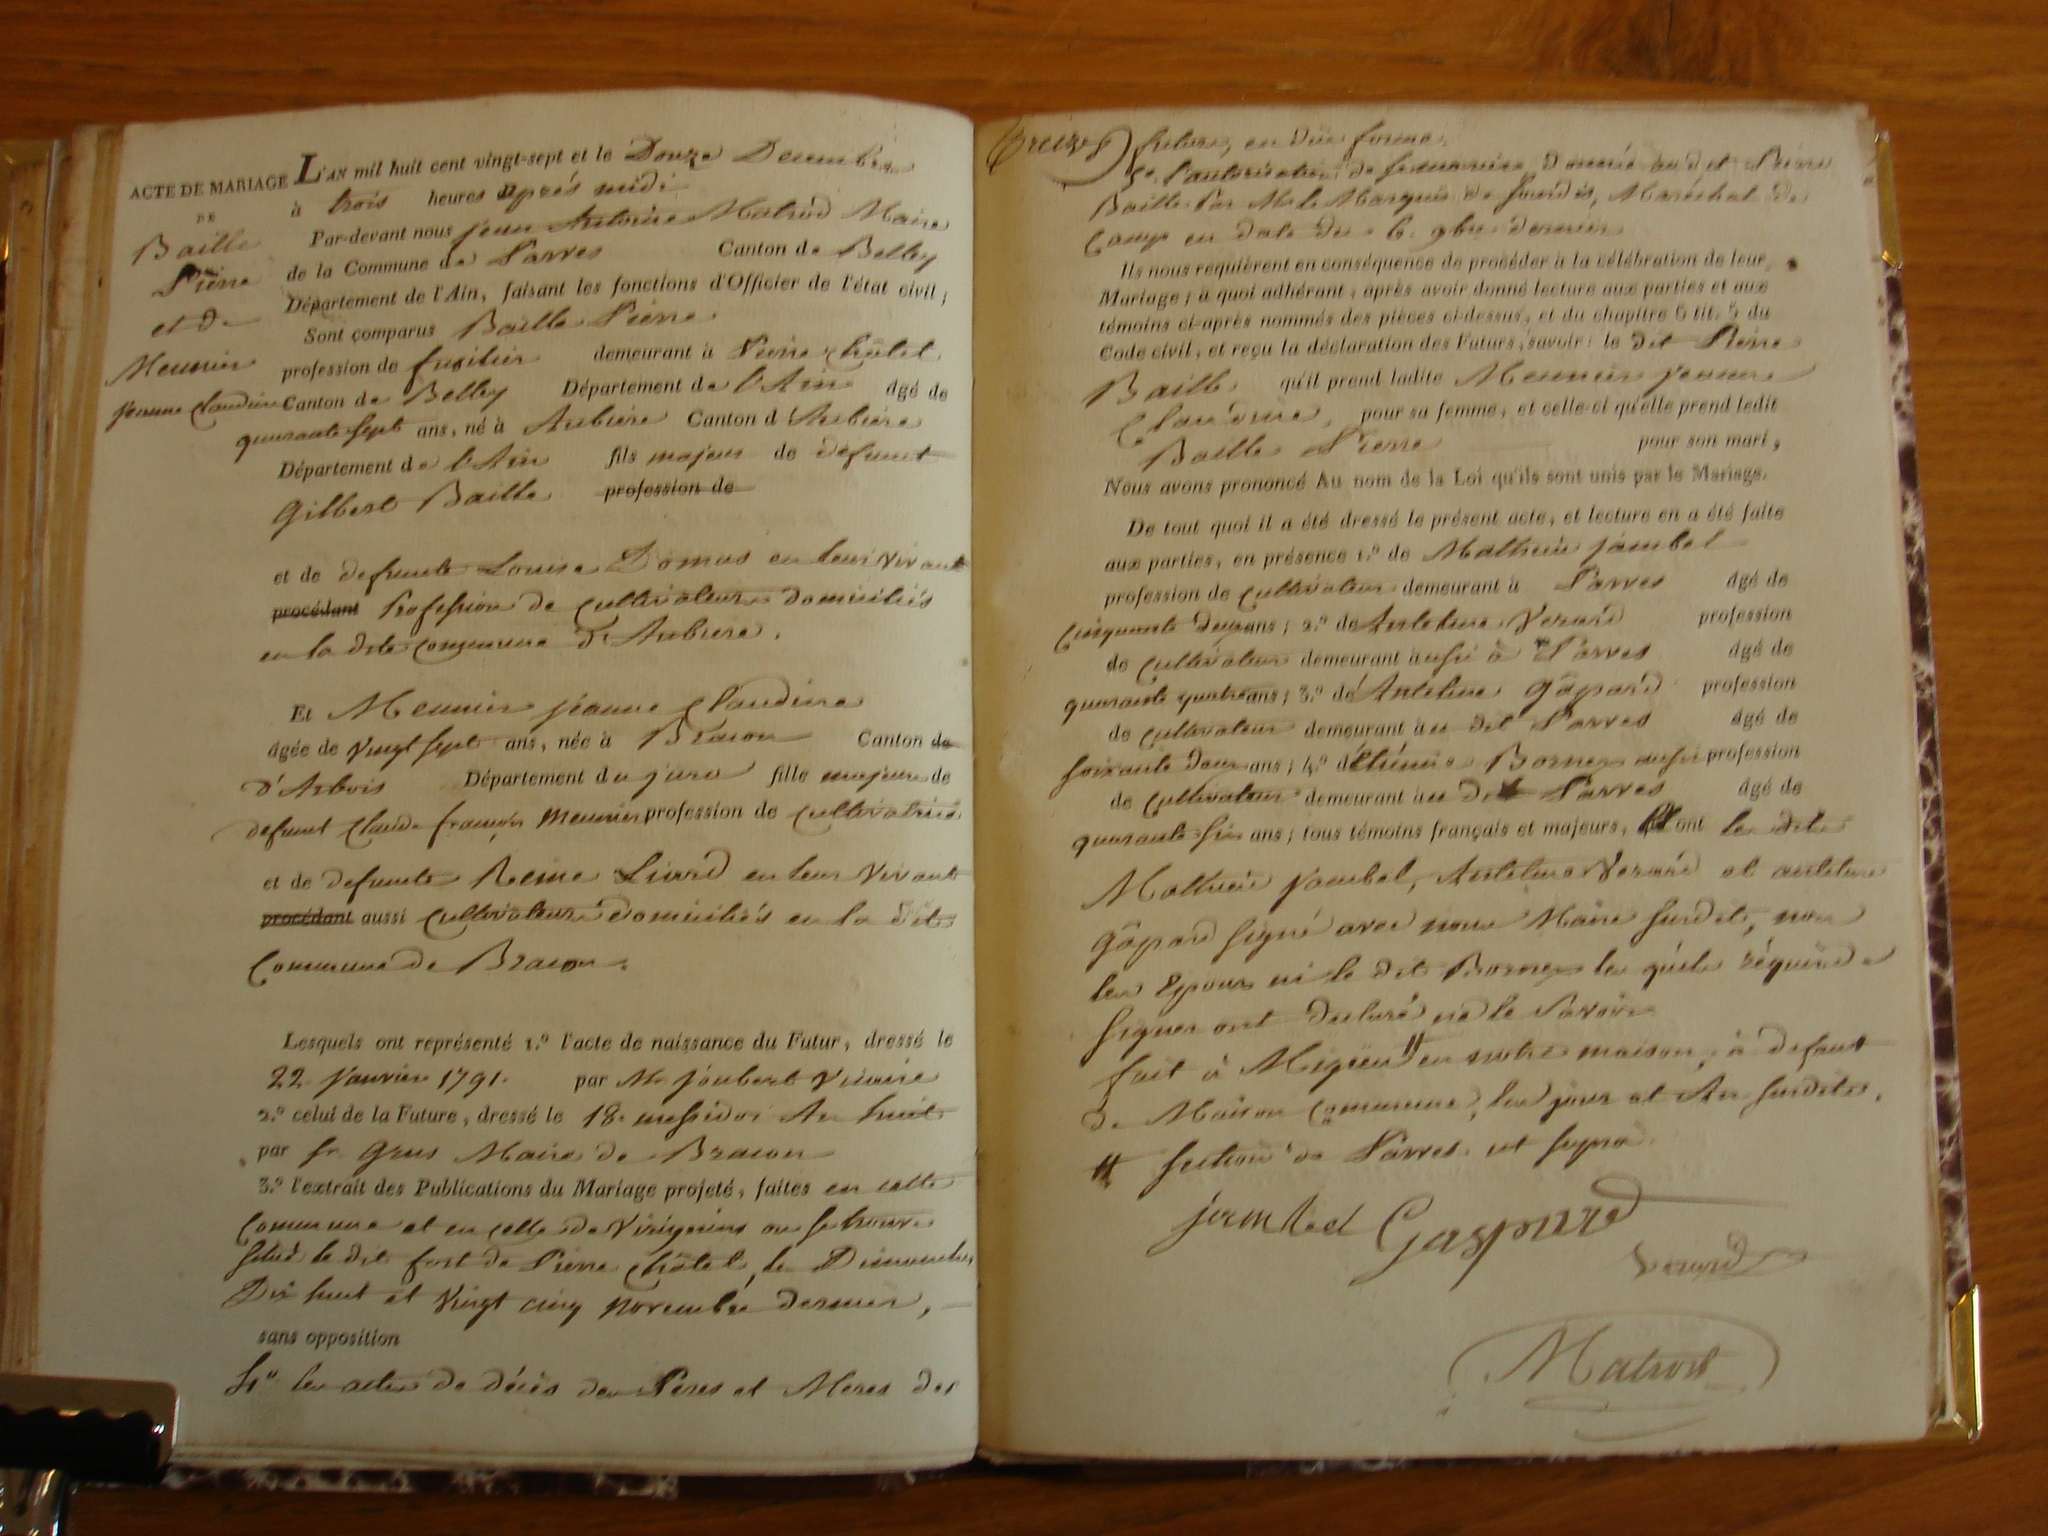 ACTE DE MARIAGE
DE
Baille
Pierre
et de
Meunier
jeanne Claudine
L'AN mil huit cent vingt-sept et le Douze Decembre
à trois heures après midi
Par-devant nous jean Antoine Matrod Maire
de la Commune de Parves Canton de Belley
Département de l'Ain, faisant les fonctions d'Officier de l'état civil;
Sont comparus Baille Pierre
profession de fusilier demeurant à Pierre châtel
Canton de Belley Département de l'Ain âgé de
quarante sept ans, né à Aubiere Canton d'Aubiere
Département de l'Ain fils majeur de défunt
Gilbert Baille profession de
et de defunte Louise Domas en leur vivant
procédant Profession de Cultivateurs domiciliés
en la dite Commune d'Aubiere.
Et Meunier jeanne Claudine
âgée de vingt sept ans, née à Bracon Canton de
d'Arbois Département du jura fille majeure de
defunt Claude françois Meunier profession de Cultivatrice
et de defunte Reine Liard en leur Vivant
procédant aussi Cultivateurs domiciliés en la dite
Commune de Bracon.
Lesquels ont représenté 1.º l'acte de naissance du Futur, dressé le
22 Janvier 1791. par Mr. Joubert Vicaire
2.º celui de la Future, dressé le 18. messidor An huit
par Sr. Grus Maire de Bracon
3.º l'extrait des Publications du Mariage projeté, faites en cette
Commune et en celle de Virignins ou se trouve
situé le dit fort de Pierre Châtel, le Dimanches
Dix huit et Vingt cinq novembre dernier,
sans opposition
4º les actes de décès des Peres et Meres des
future, en Düe forme.
5º l'autorisation de se marier donnée au dit Pierre
Baille Par Mr. le Marquis de Maréchal de
Camp en date du 6. 9bre dernier
Ils nous requièrent en conséquence de procéder à la célébration de leur
Mariage; à quoi adhérant, après avoir donné lecture aux parties et aux
témoins ci-après nommés des pièces ci-dessus, et du chapitre 6 tit. 5 du
Code civil, et reçu la déclaration des Futurs, savoir: le dit Pierre
Baille qu'il prend ladite Meunier jeanne
Claudine, pour sa femme, et celle-ci qu'elle prend ledit
Baille Pierre pour son mari,
Nous avons prononcé Au nom de la Loi qu'ils sont unis par le Mariage.
De tout quoi il a été dressé le présent acte, et lecture en a été faite
aux parties, en présence 1.º de Mathieu jambel
profession de Cultivateur demeurant à Parves âgé de
Cinquante deux ans; 2.º de Antelme Verard profession
de Cultivateur demeurant aussi à Parves âgé de
quarante quatre ans; 3.º de Antelme Gâpard profession
de Cultivateur demeurant au dit Parves âgé de
soixante deux ans; 4.º d'Etiénne Borney aussi profession
de Cultivateur demeurant au dit Parves âgé de
quarante six ans; tous témoins français et majeurs, et ont les dits
Mathieu Jambel, Antelme Verard et antelme
Gâpard signé avec nous Maire susdit, non
les Epoux ni le dit Borney les quels réquis de
signer ont declaré ne le savoir.
fait à Migieu // en notre maison, à defaut
de Maison Commune, les jour et An susdits.
// section de Parves. et signé
jeambel Gasparrd
Verard
Matrod